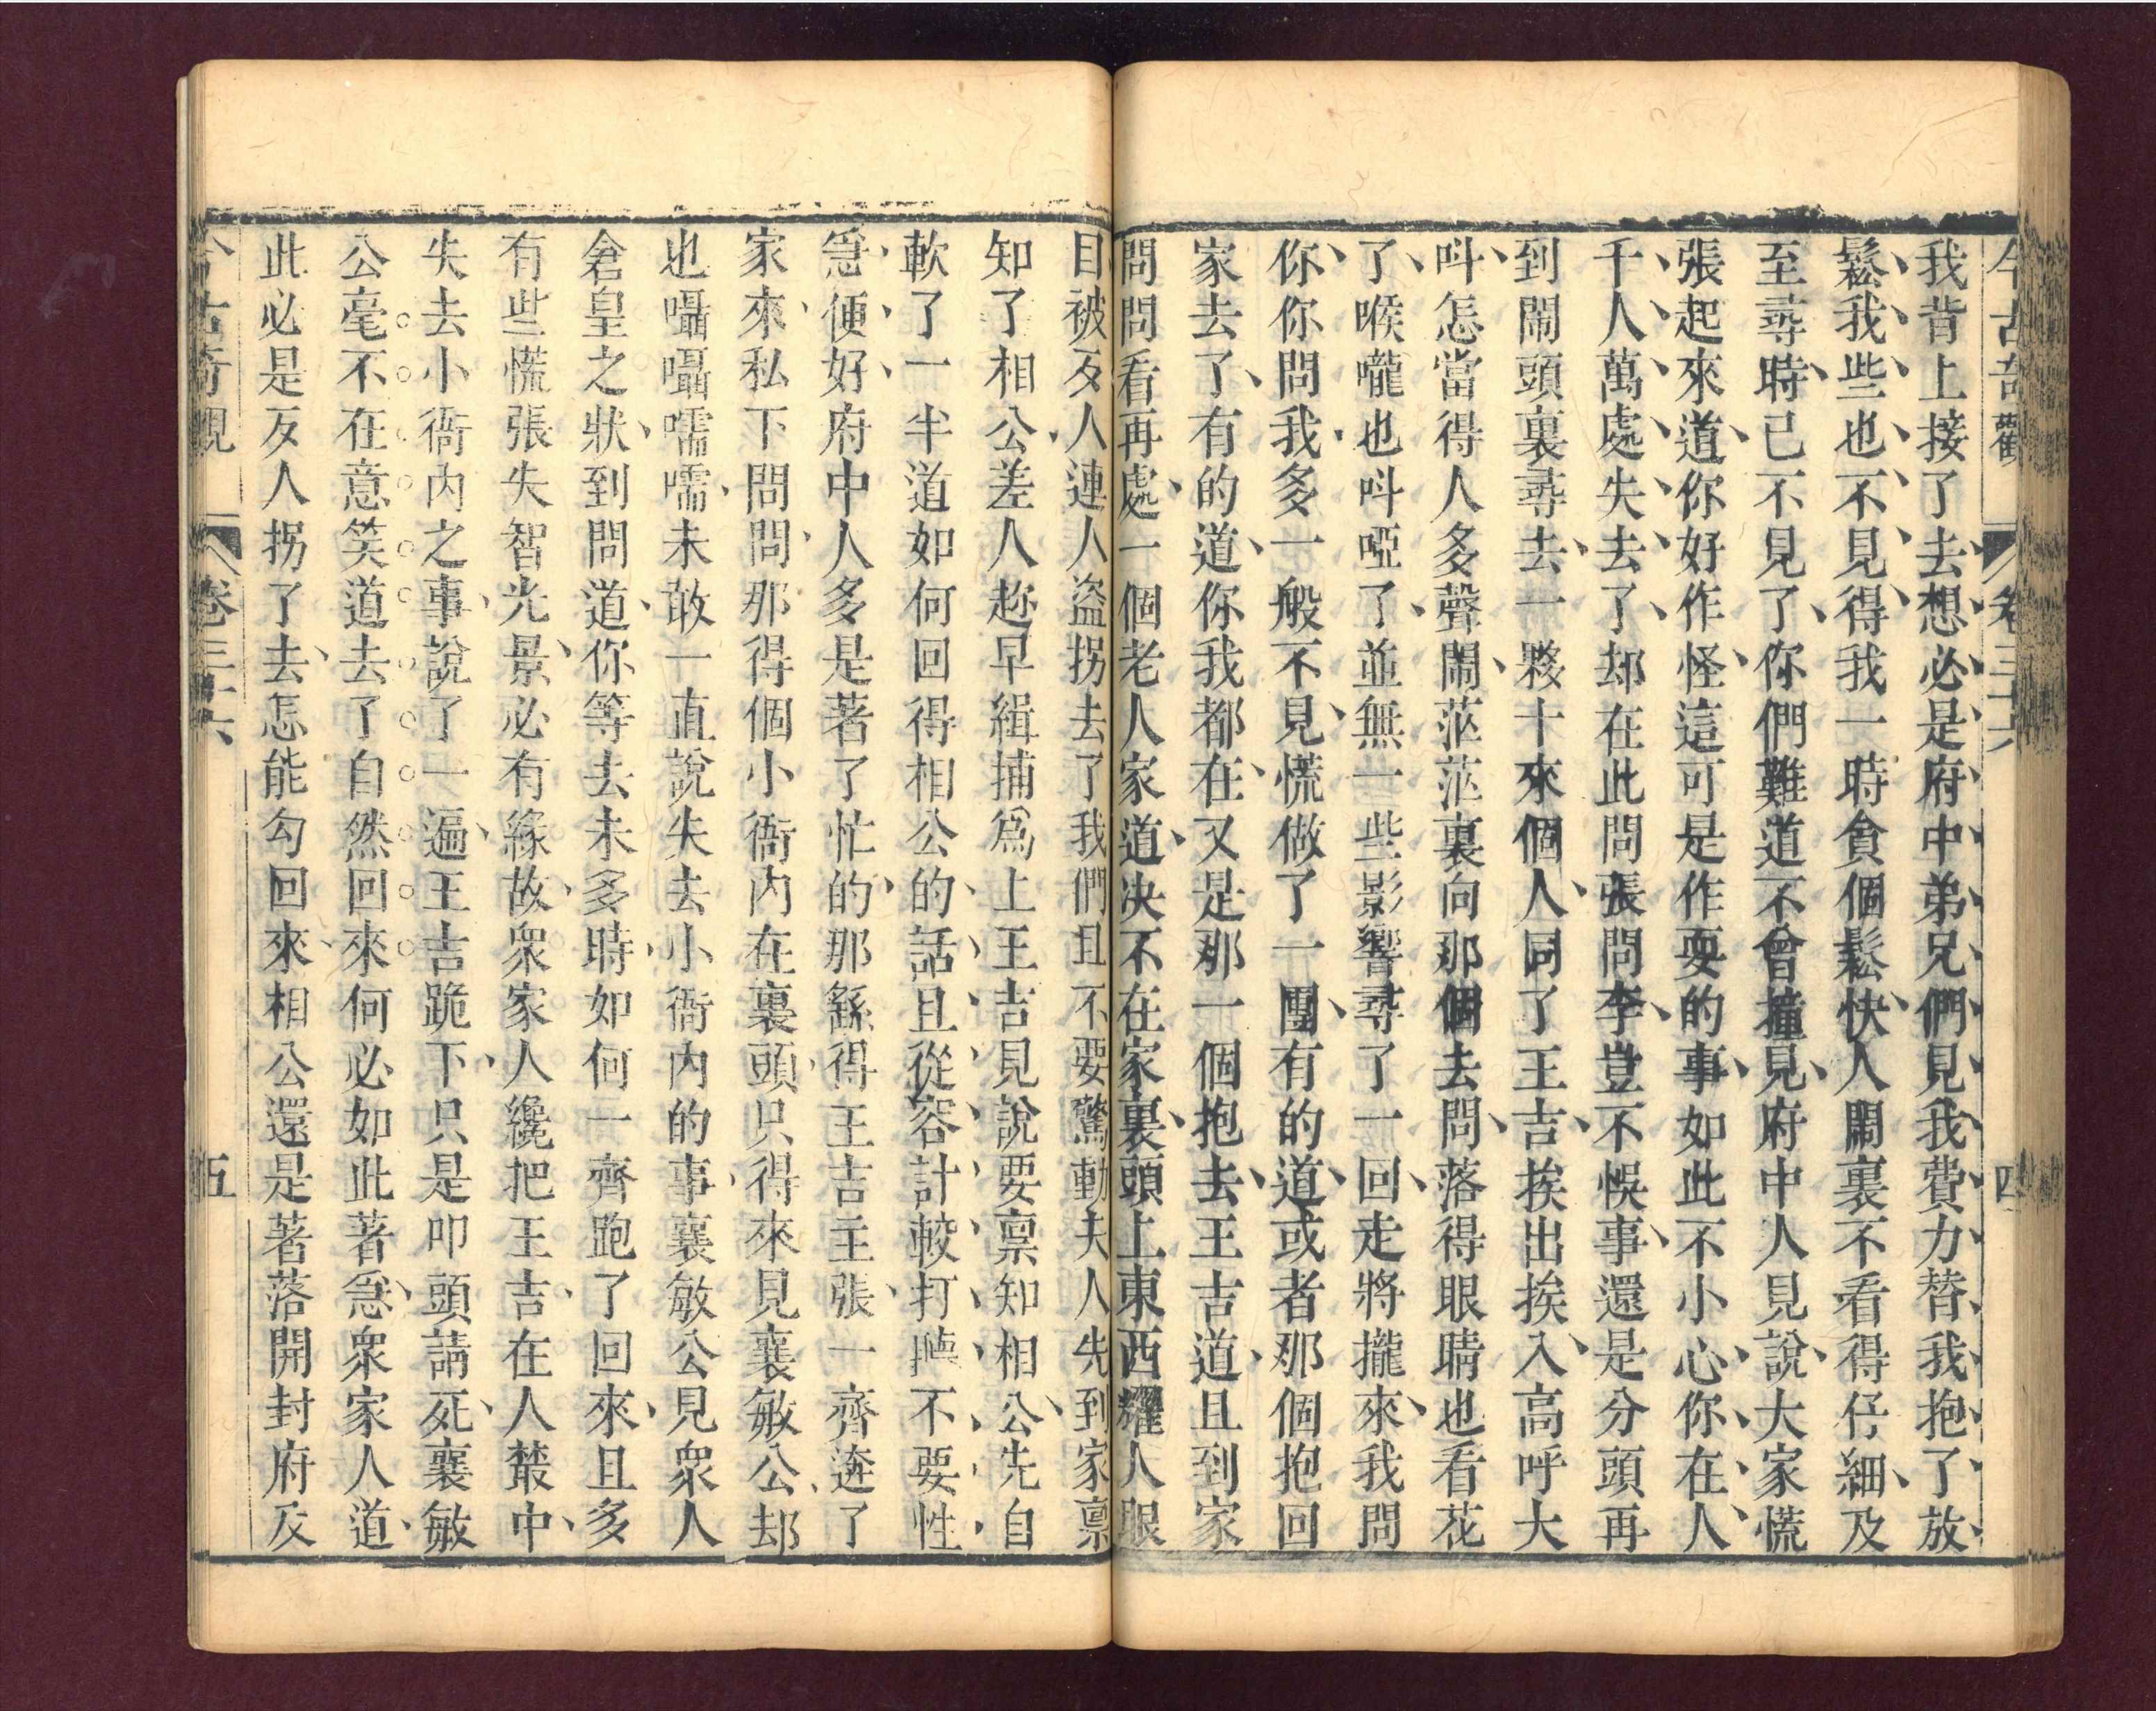 今古奇觀 卷三十六 四
我背上接了去想必是府中弟兄們見我費力替我抱了放
鬆我些也不見得我一時貪個鬆快人鬧裏不看得仔細及
至尋時已不見了你們難道不曾撞見府中人見說大家慌
張起來道你好作怪這可是作耍的事如此不小心你在人
千人萬處失去了却在此問張問李豈不悞事還是分頭再
到鬧頭裏尋去一夥十來個人同了王吉挨出挨入高呼大
呌怎當得人多聲鬧茫茫裏向那個去問落得眼睛也看花
了喉嚨也呌啞了並無一些影響尋了一回走將攏來我問
你你問我多一般不見慌做了一團有的道或者那個抱回
家去了有的道你我都在又是那一個抱去王吉道且到家
問問看再處一個老人家道决不在家裏頭上東西耀人眼
目被歹人連人盜拐去了我們且不要驚動夫人先到家稟
知了相公差人趂早緝捕爲上王吉見說要稟知相公先自
軟了一半道如何回得相公的話且從容計較打聽不要性
急便好府中人多是著了忙的那繇得王吉主張一齊奔了
家來私下問問那得個小衙內在裏頭只得來見襄敏公却
也囁囁嚅嚅未敢一直說失去小衙內的事襄敏公見衆人
倉皇之狀到問道你等去未多時如何一齊跑了回來且多
有些慌張失智光景必有緣故衆家人纔把王吉在人叢中
失去小衙內之事說了一遍王吉跪下只是叩頭請死襄敏
公毫不在意笑道去了自然回來何必如此著急衆家人道
此必是歹人拐了去怎能勾回來相公還是著落開封府及
今古奇觀 卷三十六 五